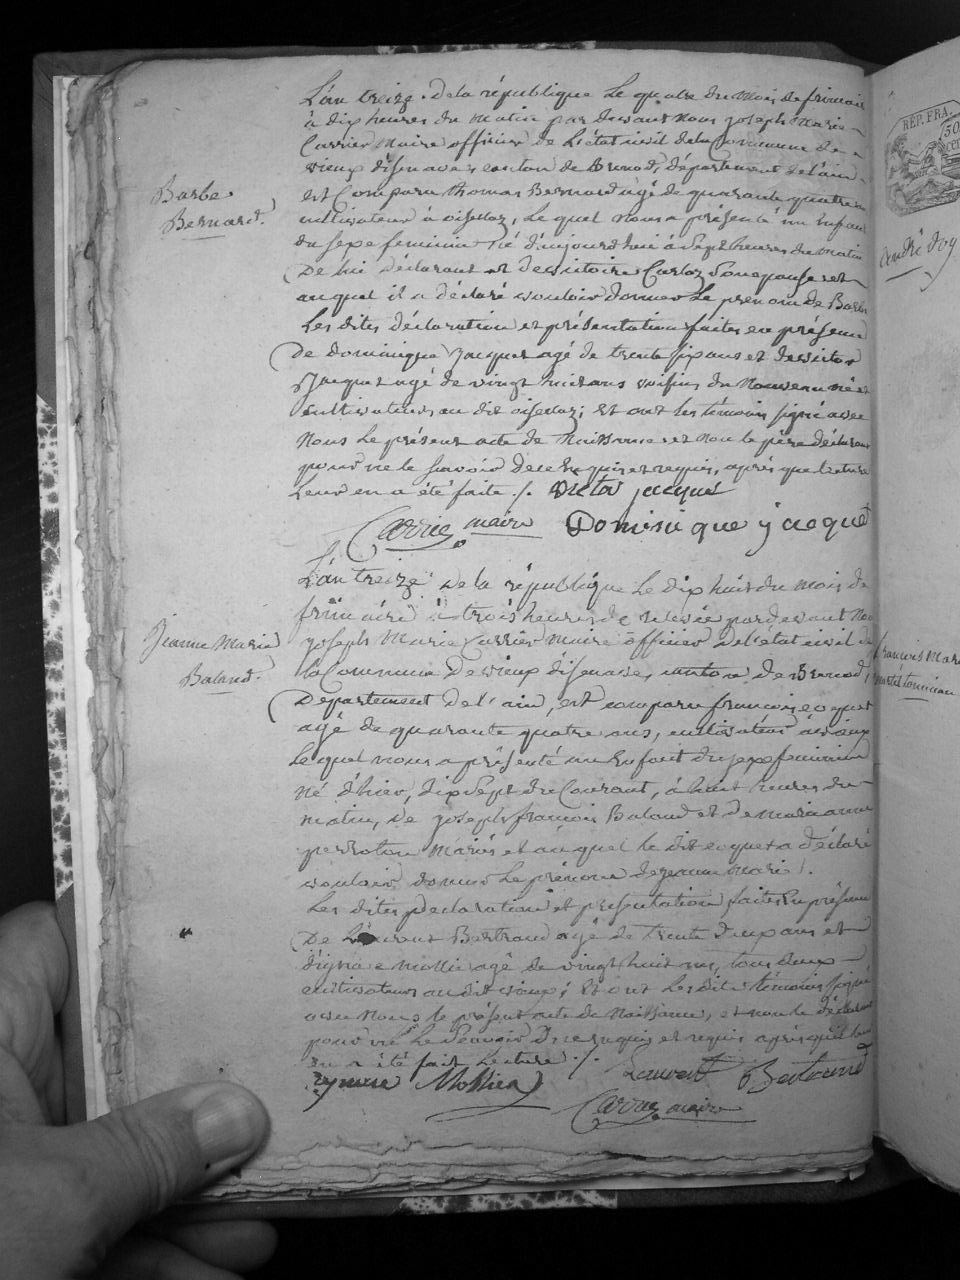 L'an treize de la république le quatre du mois de frimair
à dix heures du matin par devant nous joseph Marie
Carrier Maire officier de L'état civil de la Commune de
vieux d'isenave, canton de Brenod, département de l'ain
est Comparu thomas Bernard agé de quarante quatre
Barbe
Bernard.
cultivateur à oisellaz, Le quel nous a présenté un Enfant
du sexe feminin né d'aujourd'hui à sept heures du matin
De lui déclarant et de victoire Carloz son epouse et
auquel il a déclaré vouloir donner Le prenom de Barbe
Les dites déclaration et présentation faites en présence
De dominique Jacquet agé de trente six ans et de victor
Jacquet agé de vingt huit ans voisins du nouveau né et
cultivateurs au dit oisellaz; et ont Les témoins signé avec
nous Le présent acte de Naissance et non le père déclarant
pour ne le savoir de ce Enquis et requis, après que lecture
Leur en a été faite ./. victor jacquet
Carrier maire Dominique jacquet
L'an treize de la république Le dix huit du mois de
frimaire à trois heures de relevée par devant Nous
Jeanne Marie
Baland.
joseph Marie Carrier maire officier de l'état civil de
la Commune De vieux d'isenave, canton de Brenod,
Departement de l'ain, est comparu françois coquet
agé de quarante quatre ans, cultivateur à vieux
Le quel nous a présenté un Enfant du sexe feminin
né d'hier, dix sept du Courant, à huit heures du
matin, de joseph françois Baland et de marianne
perroton Mariés et auquel le dit coquet a déclaré
vouloir donner Le prénom de jeanne marie.
Les dites declaration et presentation faites En présence
De Laurent Bertrand agé de trente deux ans et
d'aymé Mollie agé de vingt huit ans, tous deux
cultivateurs au dit vieux; Et ont Les dits témoins signé
avec Nous le présent acte de Naissance, et non le déclarant
pour ne Le savoir De ce enquis et requis après qu'il leur
en a été fait Lecture ./.
Laurent Bertrand
aymée Mollie
Carrier maire
REP. FRA.
50
CEN
andré
françois Marie